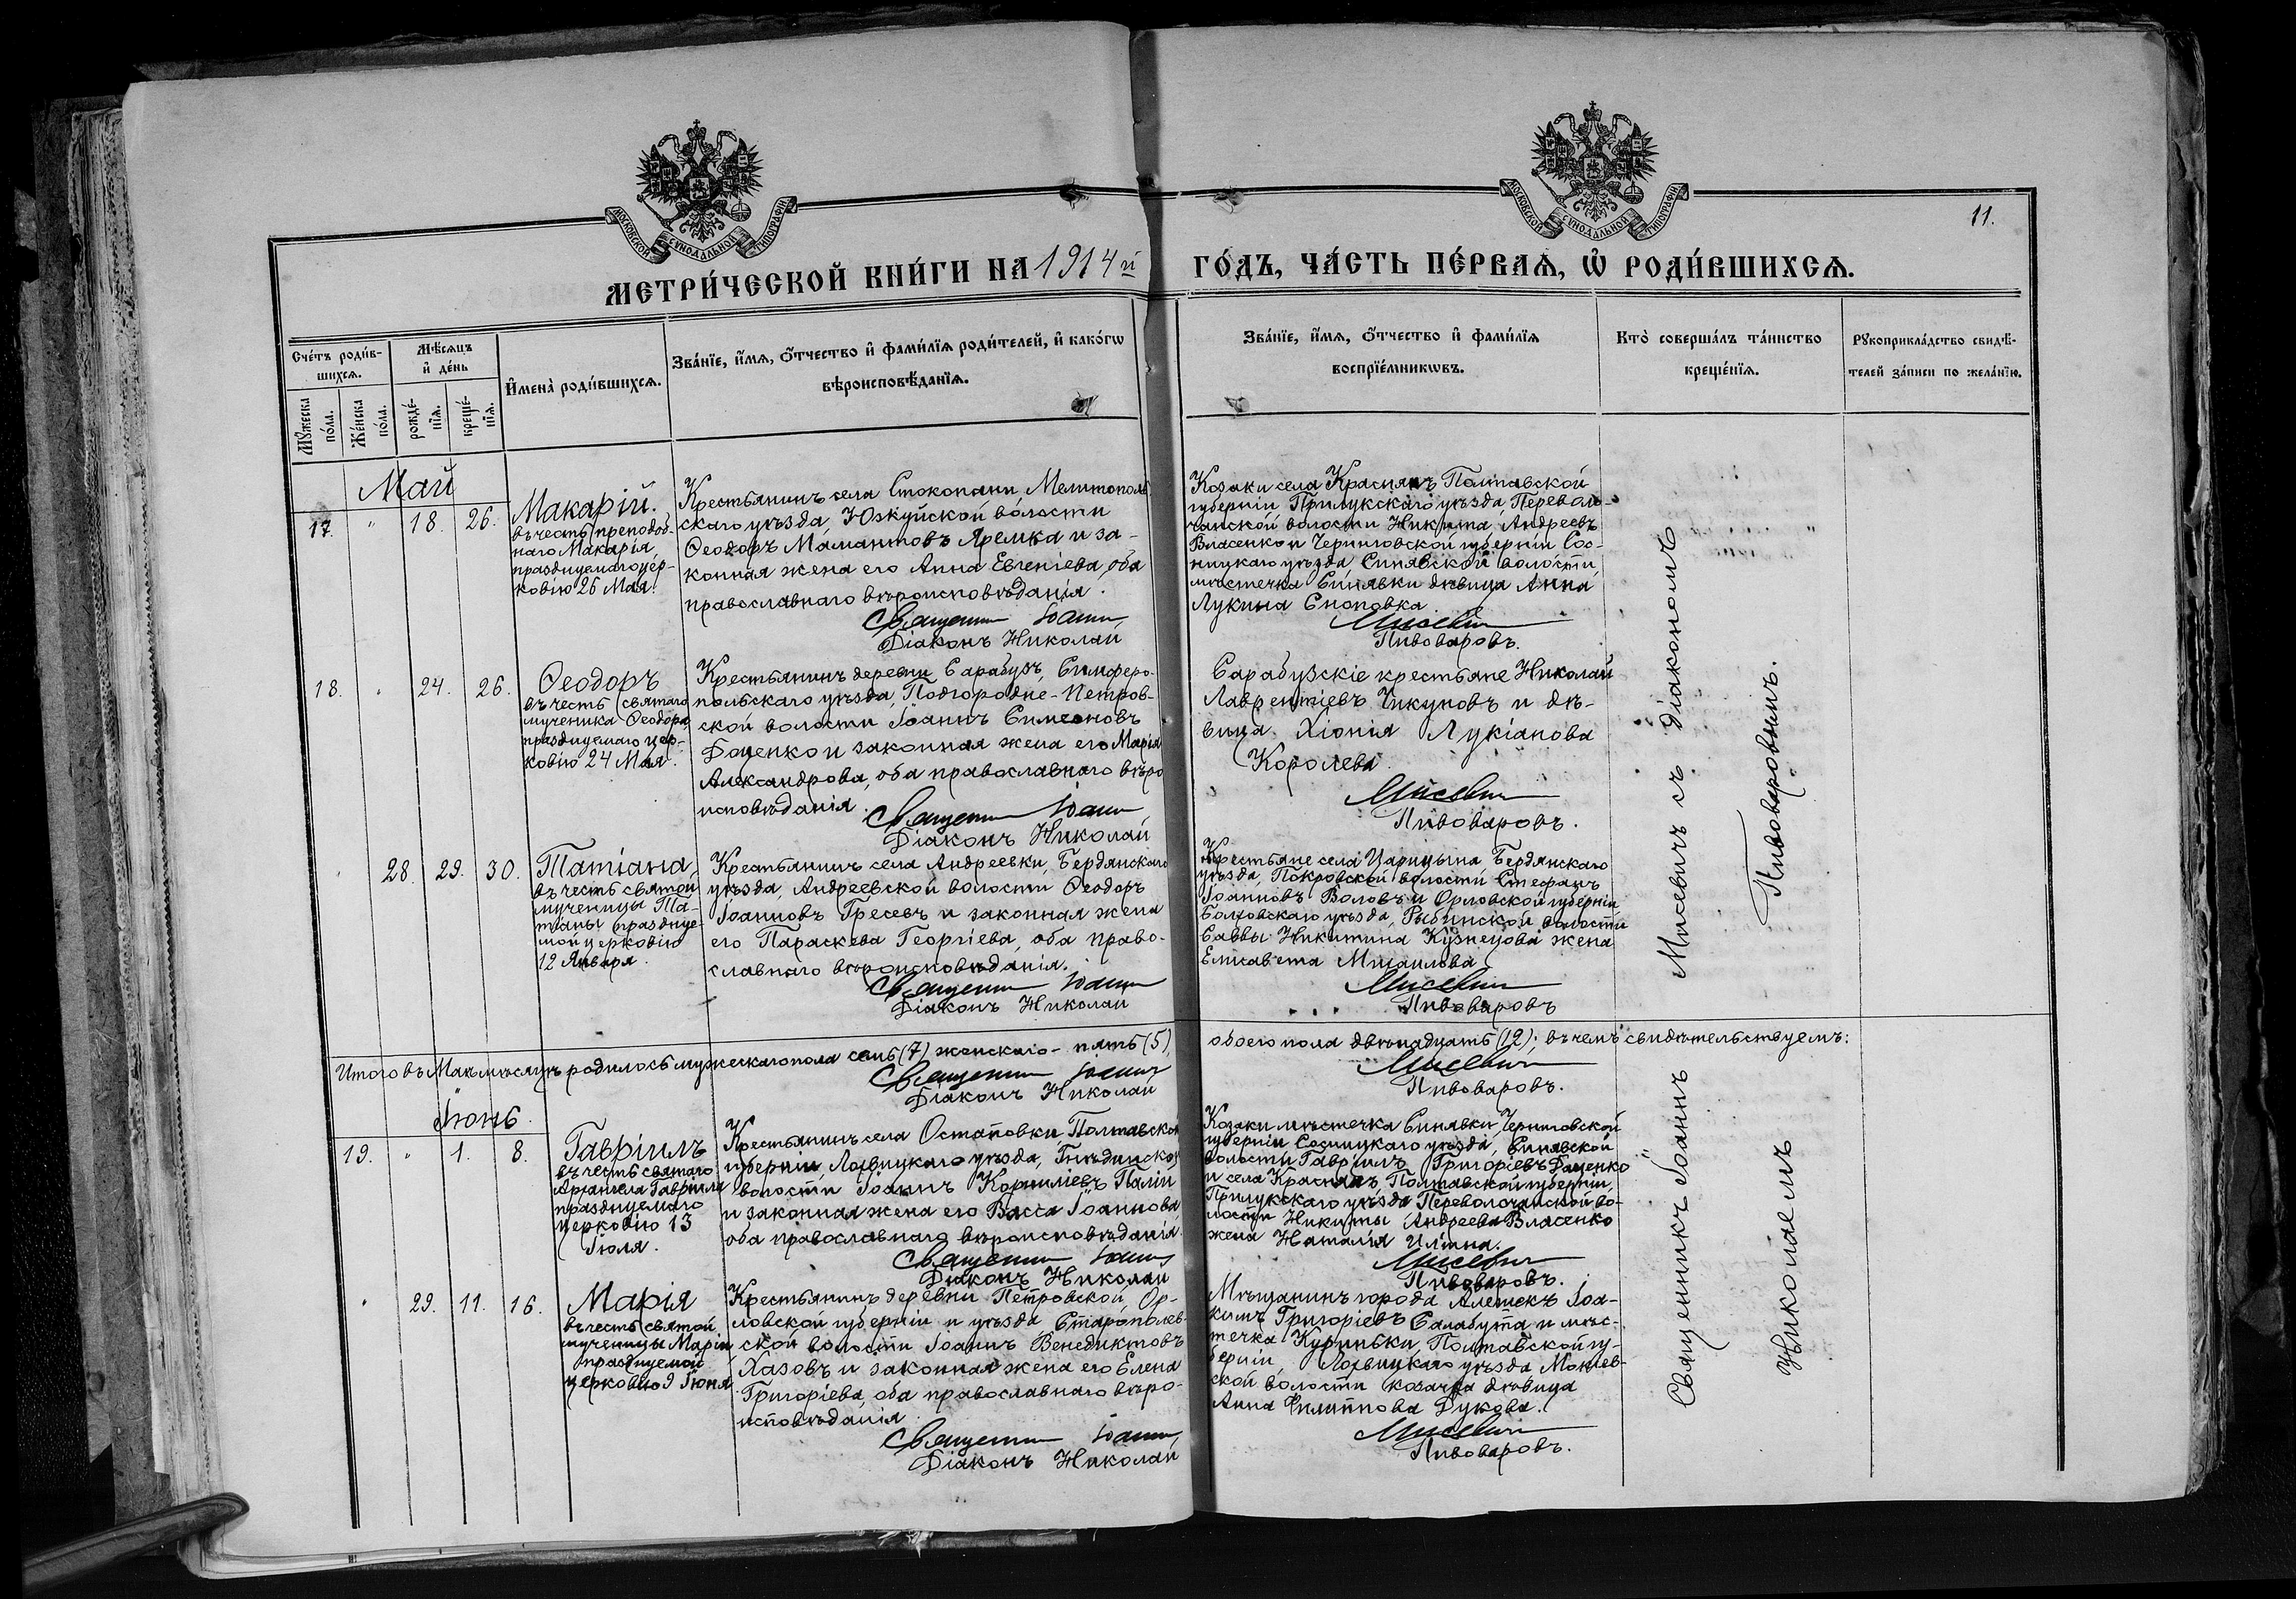 МОСКОВСКОЙ СУНОДАЛЬНОЙ ТИПОГРАФІИ
МОСКОВСКОЙ СУНОДАЛЬНОЙ ТИПОГРАФІИ
11.
МЕТРИ́ЧЕСКОЙ КНИ́ГИ НА 1914й ГО́ДЪ, ЧА́СТЬ ПЕ́РВАѦ, Ѽ РОДИ́ВШИХСѦ.
Сче́тъ роди́в-
шихсѧ.
Мꙋ́жеска по́ла.
Же́нска по́ла.
Мѣ́сѧцъ
и҆ де́нь
рожде́-
нїѧ.
креще́-
нїѧ.
И҆мена̀ роди́вшихсѧ.
Зва́нїе, и҆́мѧ, ѻ҆́тчество и҆ фами́лїѧ роди́телей, и҆ како́гѡ
вѣроисповѣ́данїѧ.
Зва́нїе, и҆́мѧ, ѻ҆́тчество и҆ фами́лїѧ
воспрїе́мникѡвъ.
Кто̀ соверша́лъ та́инство
креще́нїѧ.
Рꙋкоприкла́дство свидѣ́-
телей за́писи по жела́нїю.
Май
17. " 18. 26.
Макарій.
въ честь преподоб-
наго Макарія,
празднуемаго цер-
ковію 26 Мая.
Крестьянинъ села Стокопани, Мелитополь
скаго уѣзда, Юзкуйской волости
Ѳеодоръ Мамантовъ Яремка и за-
конная жена его Анна Евгеніева, оба
православнаго вѣроисповѣданія.
Священникъ Іоаннъ
Діаконъ Николай
Козаки села Краснянъ Полтавской
губерніи Прилукскаго уѣзда, Переволо-
чанской волости Никита Андреевъ
Власенко и Черниговской губерніи Сос-
ницкаго уѣзда, Синявской волости,
мѣстечка Синявки дѣвица Анна
Лукина Сноповка.
Мисевич
Пивоваровъ.
18. " 24. 26.
Ѳеодоръ
въ честь святаго
мученика Ѳеодора,
празднуемаго цер-
ковію 24 Мая.
Крестьянинъ деревни Сарабузъ, Симферо-
польскаго уѣзда, Подгородне-Петров-
ской волости Іоаннъ Симеоновъ
Доценко и законная жена его Марія
Александрова, оба православнаго вѣро
исповѣданія.
Священникъ Іоаннъ
Діаконъ Николай
Сарабузскіе крестьяне Николай
Лаврентіевъ Чикуновъ и дѣ-
вица Хіонія Лукіанова
Королева.
Мисевич
Пивоваровъ.
" 28. 29. 30.
Татіана,
въ честь святой
мученицы Та-
тіаны празднуе-
мой церковію
12 Января.
Крестьянинъ села Андреевки, Бердянскаго
уѣзда, Андреевской волости Ѳеодоръ
Іоанновъ Гресевъ и законная жена
его Параскева Георгіева, оба право-
славнаго вѣроисповѣданія.
Священникъ Іоаннъ
Діаконъ Николай
Крестьяне села Царицына Бердянскаго
уѣзда, Покровской волости Стефанъ
Іоанновъ Воловъ и Орловской губерніи
Болховскаго уѣзда, Рыбинской волости
Саввы Никитина Кузнецова жена
Елисавета Михаилова
Мисевич
Пивоваровъ
Итого въ Маѣ мѣсяцѣ родилось мужескаго пола семь (7) женскаго - пять (5), обоего пола двѣнадцать (12); въ чемъ свидѣтельствуемъ:
Священникъ Іоаннъ Мисевич
Діаконъ Николай Пивоваровъ.
Іюнь.
19. " 1. 8.
Гавріилъ
въ честь святаго
Архангела Гавріила
празднуемаго
церковію 13
Іюля.
Крестьянинъ села Остаповки, Полтавской
губерніи, Лохвицкаго уѣзда, Гнѣдинской
волости Іоаннъ Корниліевъ Палій
и законная жена его Васса Іоаннова
оба православнаго вѣроисповѣданія.
Священникъ Іоаннъ
Діаконъ Николай
Козаки мѣстечка Синявки, Черниговской
губерніи Сосницкаго уѣзда, Синявской
волости Гавріилъ Григоріевъ Даценко
и села Краснянъ Полтавской губерніи,
Прилукскаго уѣзда Переволочанской во-
лости Никиты Андреева Власенко
жена Наталія Иліина.
Мисевич
Пивоваровъ.
" 29. 11. 16.
Марія
въ честь святой
мученицы Маріи
празднуемой
церковію 9 Іюня
Крестьянинъ деревни Петровской, Ор-
ловской губерніи и уѣзда Старополев-
ской волости Іоаннъ Венедиктовъ
Хазовъ и законная жена его Елена
Григоріева, оба православнаго вѣро-
исповѣданія.
Священникъ Іоаннъ
Діаконъ Николай
Мѣщанинъ города Алешекъ Іоа-
кимъ Григоріевъ Салабута и мѣс-
течка Куриньки, Полтавской гу-
берніи, Лохвицкаго уѣзда,
ской волости козачка дѣвица
Анна Филиппова Дукова.
Мисевич
Пивоваровъ.
Священникъ Іоаннъ Мисевичъ съ діакономъ
Николаемъ Пивоваровымъ.